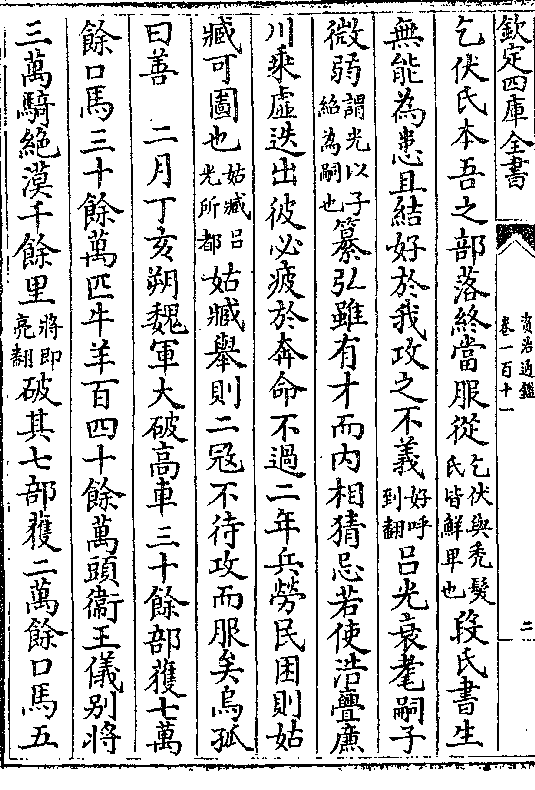 欽定四庫全書
資治通鑑
卷一百十一
二
乞伏氏本吾之部落終當服從乞伏與禿髮氏皆鮮卑也段氏書生
無能為患且結好於我攻之不義好呼到翻呂光衰耄嗣子
微弱謂光以子紹為嗣也纂弘雖有才而內相猜忌若使浩亹廉
川乘虛迭出彼必疲於奔命不過二年兵勞民困則姑
臧可圖也姑臧呂光所都姑臧舉則二寇不待攻而服矣烏孤
曰善　二月丁亥朔魏軍大破高車三十餘部獲七萬
餘口馬三十餘萬匹牛羊百四十餘萬頭衛王儀別將
三萬騎絶漠千餘里將即亮翻破其七部獲二萬餘口馬五